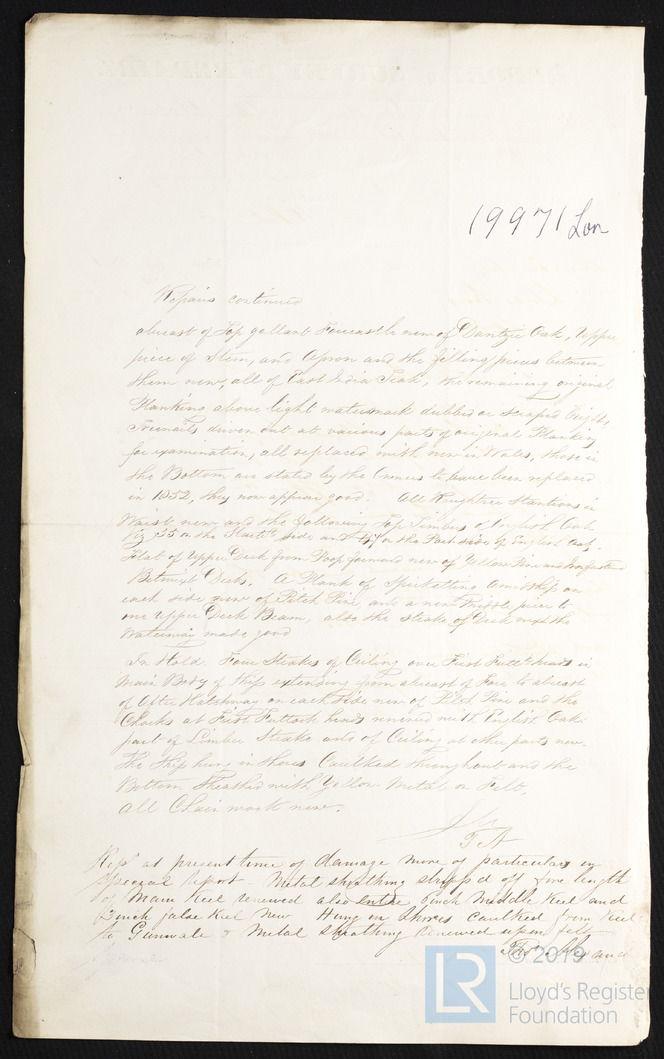 19971 Lon
Repairs continued
abreast of Top gallant Forecastle new of Dantzic Oak, Upper
piece of Stem, and Apron and the filling pieces between
them new, all of East India Teak, the remaining original
Planking above light watermark dubbed or scraped bright,
Treenails driven out at various parts of original Planking
for examination, all replaced with new in Wales, those in
the Bottom are stated by the Owners to have been replaced
in 1852, they now appear good. All Roughtree Stantions in
Waist new and the following Top Timbers of English Oak
Viz 35 on the Starbd side and 47 on the Port side of English Oak.
Flat of Upper Deck from Poop forward new of Yellow Pine and
Betwixt Decks. A Plank of Spirketting Amidship on
each side new of Pitch Pine, and a new Middle piece to
one Upper Deck Beam, also the Strake of Deck next the
Waterway made good
In Hold. Four Strakes of Ceiling over First Futtk heads in
Main Body of Ship extending from abreast of Fore to abreast
of After Hatchway on each side new of Pitch Pine and the
Chocks at First Futtock heads renewed with English Oak
part of Limber Strake and of Ceiling at other parts new.
The Ship hung in Shores Caulked throughout and the
Bottom Sheathed with Yellow Metal on Felt.
All Chain work new.
Reps at present time of damage more of particulars in
Special report - Metal sheathing stripp'd off five length
of Main Keel renewed also entire 6 inch Middle Keel and
inch false Keel New Hung in Shores caulked from Keel
to Gunwale & Metal sheathing renewed upon felt
© 2019
LR
Lloyd's Register
Foundation